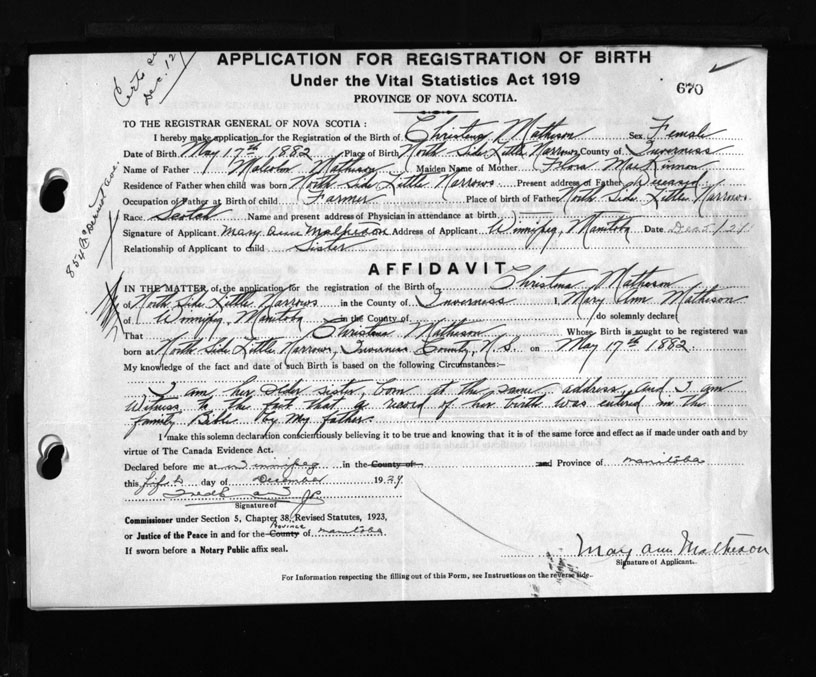 APPLICATION FOR REGISTRATION OF BIRTH
Under the Vital Statistics Act 1919
PROVINCE OF NOVA SCOTIA.
670
Dec. 12
TO THE REGISTRAR GENERAL OF NOVA SCOTIA :
I hereby make application for the Registration of the Birth of Christena Matheson Sex Female
Date of Birth May 17th 1882 Place of Birth North Side Little Narrows County of Inverness
Name of Father Malcolm Matheson Maiden Name of Mother Flora MacKinnon
Residence of Father when child was born North Side Little Narrows Present address of Father Deceased
Occupation of Father at Birth of child Farmer Place of birth of Father North Side Little Narrows
Race Scotch Name and present address of Physician in attendance at birth
Signature of Applicant Mary Ann Matheson Address of Applicant Winnipeg, Manitoba Date Dec 5
Relationship of Applicant to child Sister
AFFIDAVIT
IN THE MATTER of the application for the registration of the Birth of Christena Matheson
of North Side Little Narrows in the County of Inverness I, Mary Ann Matheson
of Winnipeg, Manitoba in the County of do solemnly declare
That Christena Matheson Whose Birth is sought to be registered was
born at North Side Little Narrows, Inverness County, N.S. on May 17th 1882
My knowledge of the fact and date of such Birth is based on the following Circumstances:—
I am her older sister, born at the same address, and I am
Witness to the fact that a record of her birth was entered in the
family Bible by my father.
I make this solemn declaration conscientiously believing it to be true and knowing that it is of the same force and effect as if made under oath and by
virtue of The Canada Evidence Act.
Declared before me at Winnipeg in the County of and Province of Manitoba
this fifth day of December 1929
Signature of
Commissioner under Section 5, Chapter 38, Revised Statutes, 1923,
Province
or Justice of the Peace in and for the County of Manitoba
If sworn before a Notary Public affix seal.
Mary Ann Matheson
Signature of Applicant.
For Information respecting the filling out of this Form, see Instructions on the reverse side.